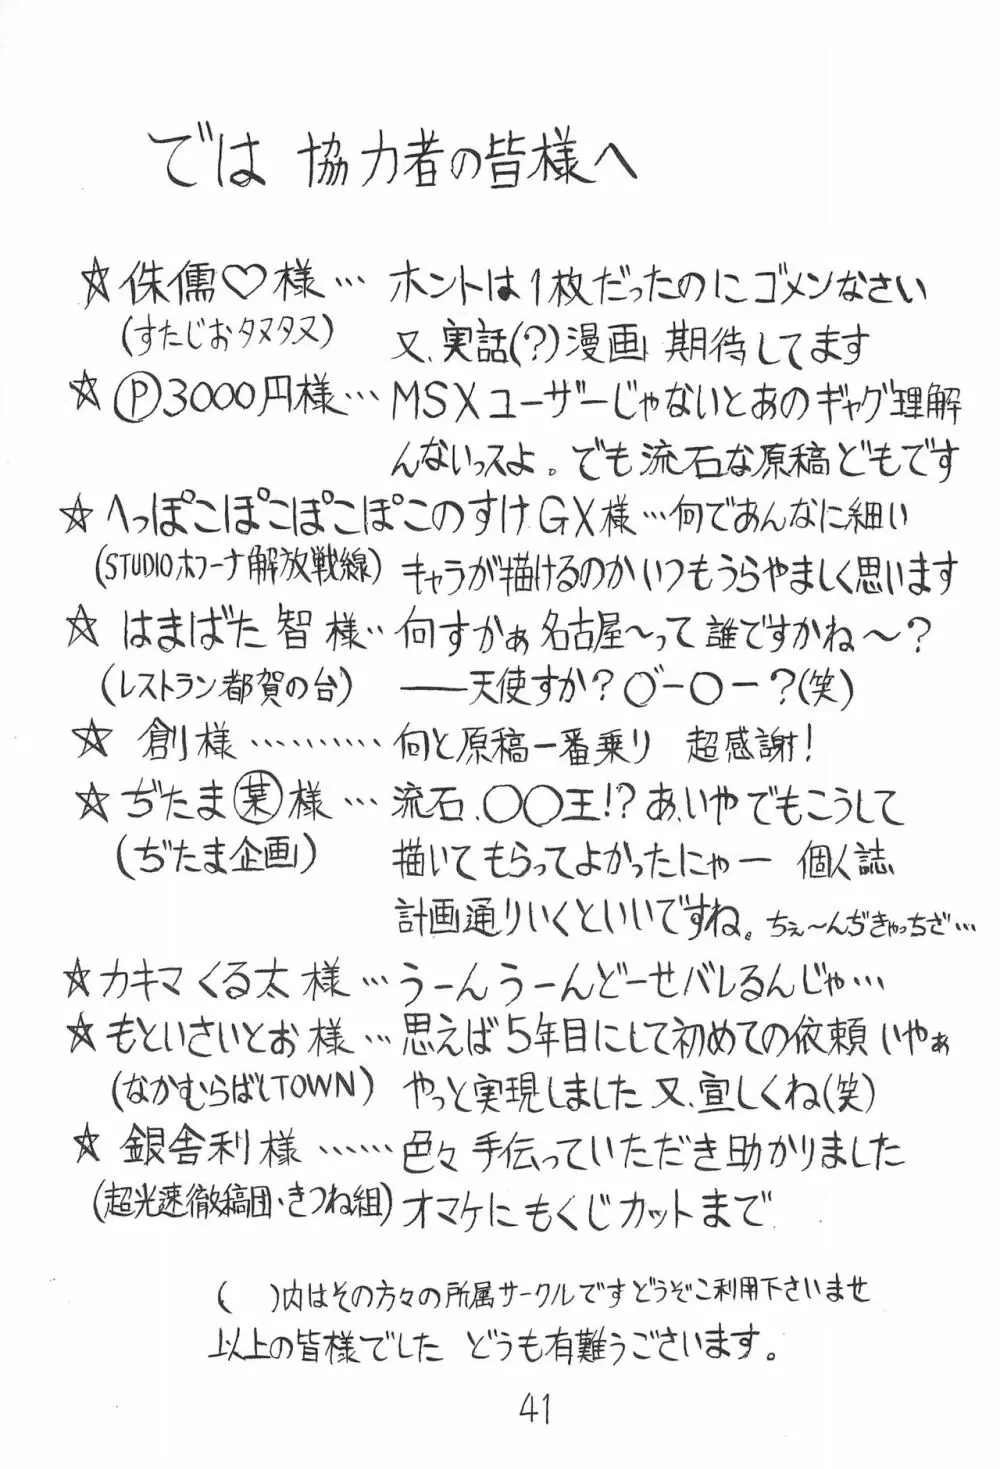 では 協力者の皆様へ
☆侏儒♡様… ホントは1枚だったのにゴメンなさい
(すたじおタヌタヌ) 又、実話(?)漫画 期待してます
☆Ⓟ3000円様… MSXユーザーじゃないとあのギャグ理解
んないっスよ。でも流石な原稿どもです
☆へっぽこぽこぽこぽこのすけGX様…何であんなに細い
(STUDIOホフーナ解放戦線) キャラが描けるのかいつもうらやましく思います
☆はまばた 智 様‥何すかぁ名古屋〜って誰ですかね〜?
(レストラン都賀の台) ――天使すか?〇゛ー〇ー?(笑)
☆ 創様………… 何と原稿一番乗り 超感謝!
☆ぢたま㊋様… 流石、〇〇王!?あ、いやでもこうして
(ぢたま企画) 描いてもらってよかったにゃー 個人誌
計画通りいくといいですね。ちぇ〜んぢきゃっちざ…
☆カキマくる太様…うーんうーんどーせバレるんじゃ…
☆もといさいとお様…思えば5年目にして初めての依頼いやぁ
(なかむらばしTOWN) やっと実現しました又、宜しくね(笑)
☆銀舎利様……色々手伝っていただき助かりました
(超光速徹稿団・きつね組)オマケにもくじカットまで
( )内はその方々の所属サークルですどうぞご利用下さいませ
以上の皆様でした どうも有難うございます。
41